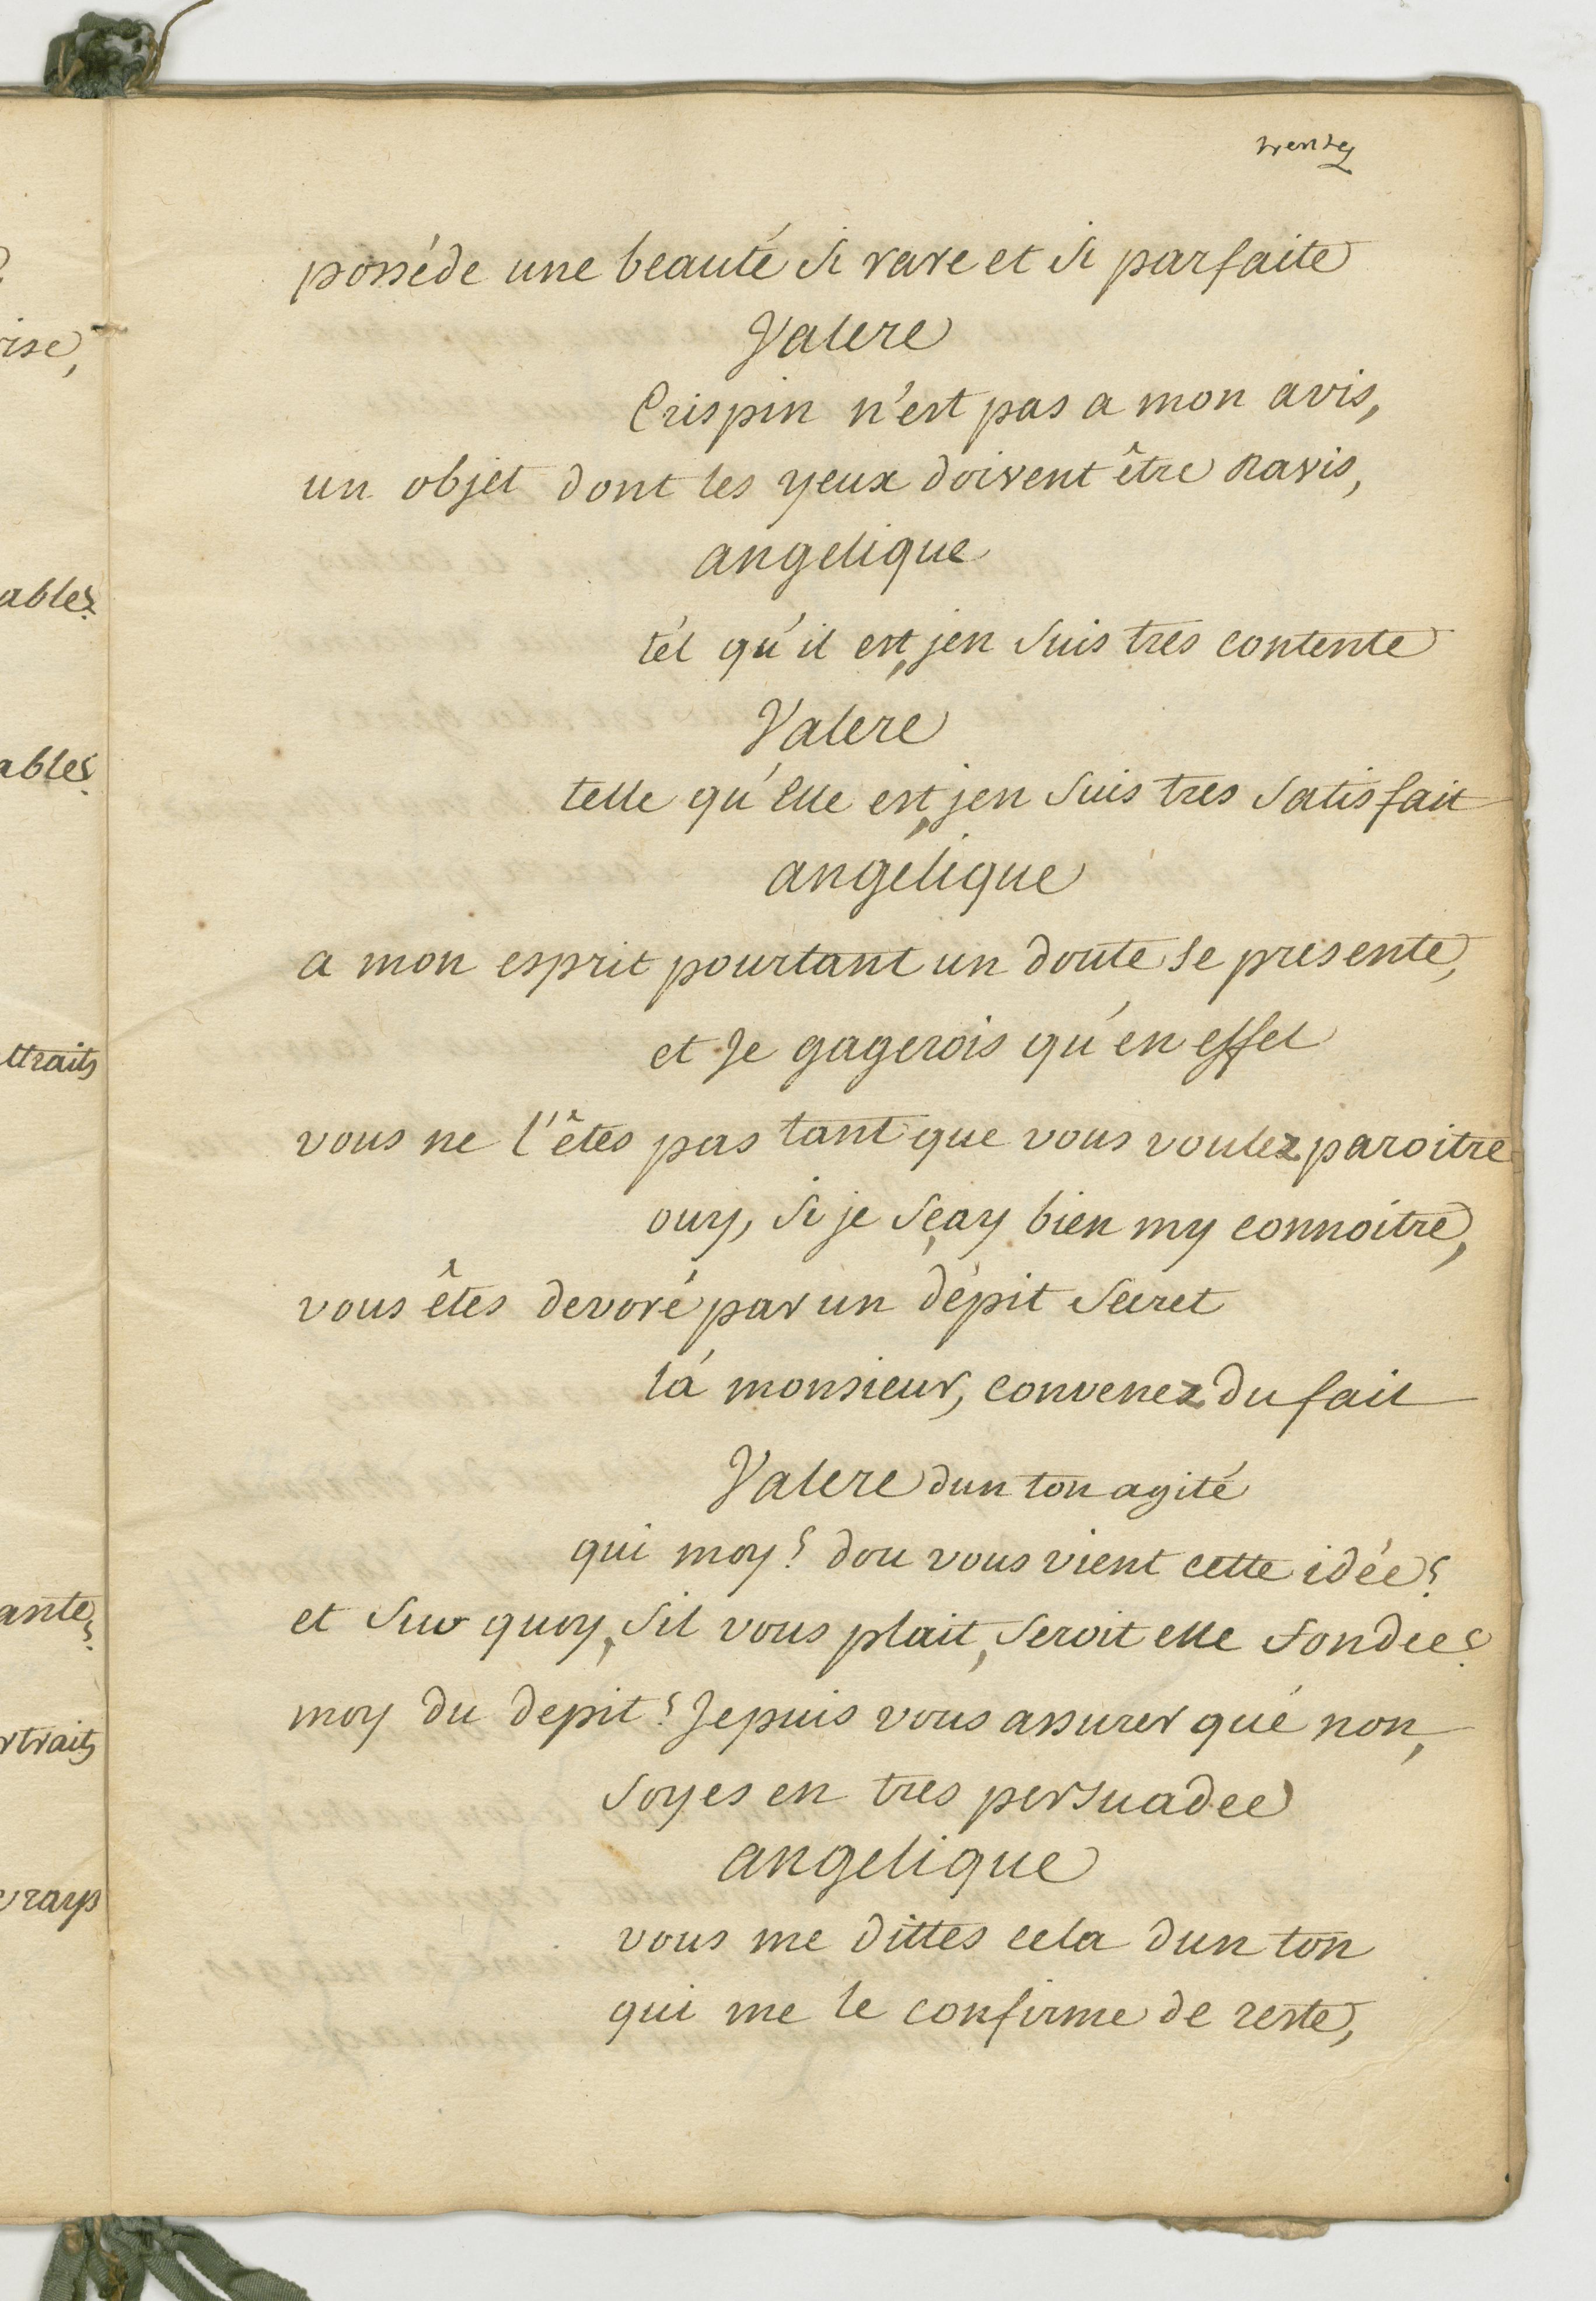 possède une beauté si rare et si parfaite
Valere
Crispin n'est pas a mon avis,
un objet dont les yeux doivent être ravis,
angelique
tél qu'il est, jen suis tres contente
Valere
telle qu'elle est, jen suis tres satisfait
angélique
a mon esprit pourtant un doute se presente,
et Je gagerois qu'en effet
vous ne l'êtes pas tant que vous voulez paroitre
ouy, si je sçay bien my connoitre,
vous êtes devoré par un dépit secret
là monsieur, convenez du fait
Valere dun ton agité
qui moy? dou vous vient cette idée?
et sur quoy, sil vous plait, seroit elle fondée?
moy du depit? Je puis vous assurer que non,
soyes en tres persuadee
angelique
vous me dittes cela dun ton
qui me le confirme de reste,
ise,
ables
ables
ttraits
ante?
rtraits
vrays